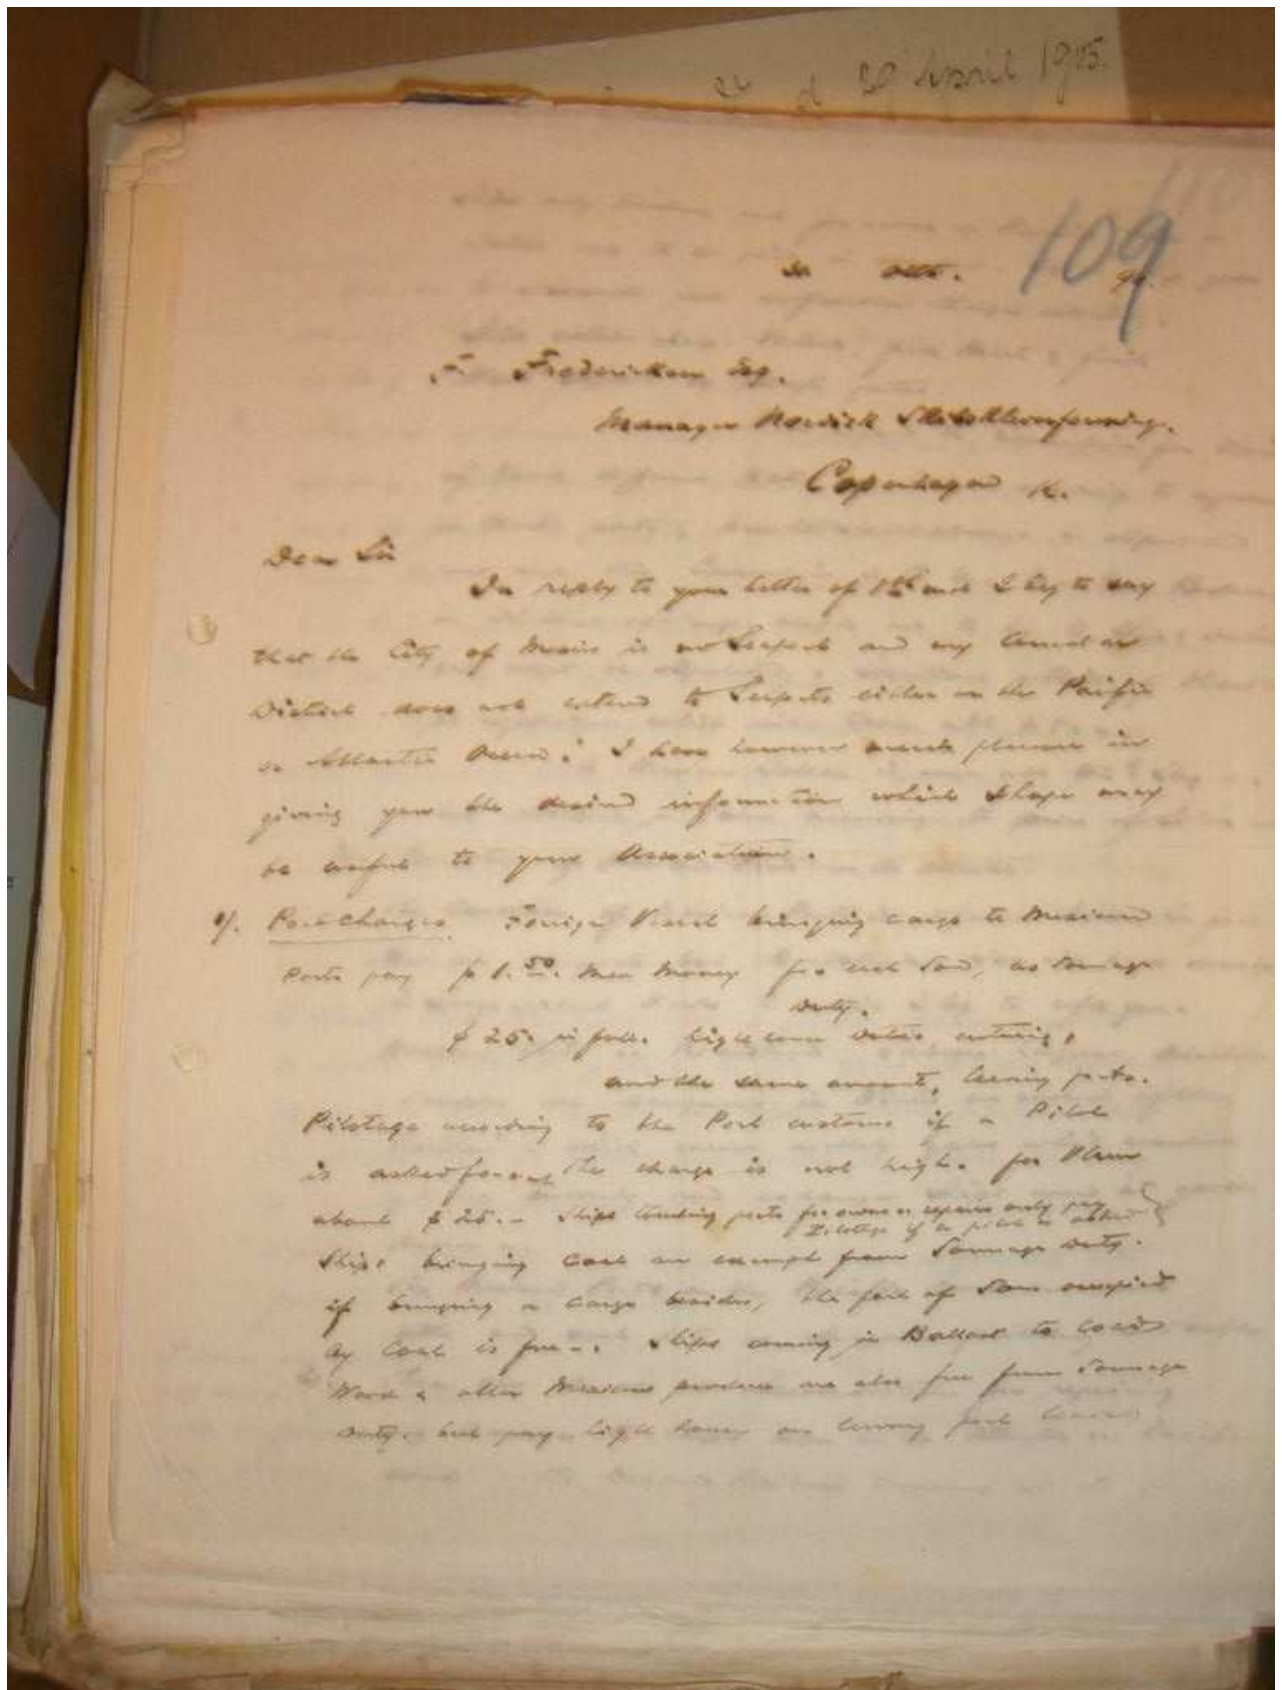 20 April 1905.
109
Octb.
F. Fredericksen Esq.
Manager Nordisk Skibsrederforening.
Copenhagen K.
Dear Sir
In reply to your letter of inst I beg to say
that the City of Mexico is no Seaport and my Consular
District does not extend to Seaports either on the Pacific
or Atlantic Ocean. I have however much pleasure in
giving you the desired information which I hope may
be useful to your Association.
Port Charges Foreign Vessel bringing cargo to Mexican
Ports pay $ 1.50. Mex Money for each Ton, as Tonnage
Duty.
$ 25. in full. light house Duties entering,
and the same amount, leaving ports.
Pilotage according to the Port customs if a Pilot
is asked for the charge is not high. for
about $ 25.- Ships touching ports for orders or repairs only pay
Pilotage if a pilot is asked
Ships bringing Coal are exempt from Tonnage Duty.
if bringing a Cargo besides, the part of Tons occupied
by Coal is free. Ships coming in Ballast to load
Wood & other Mexican produce are also free from Tonnage
Duty. but pay light house on leaving port